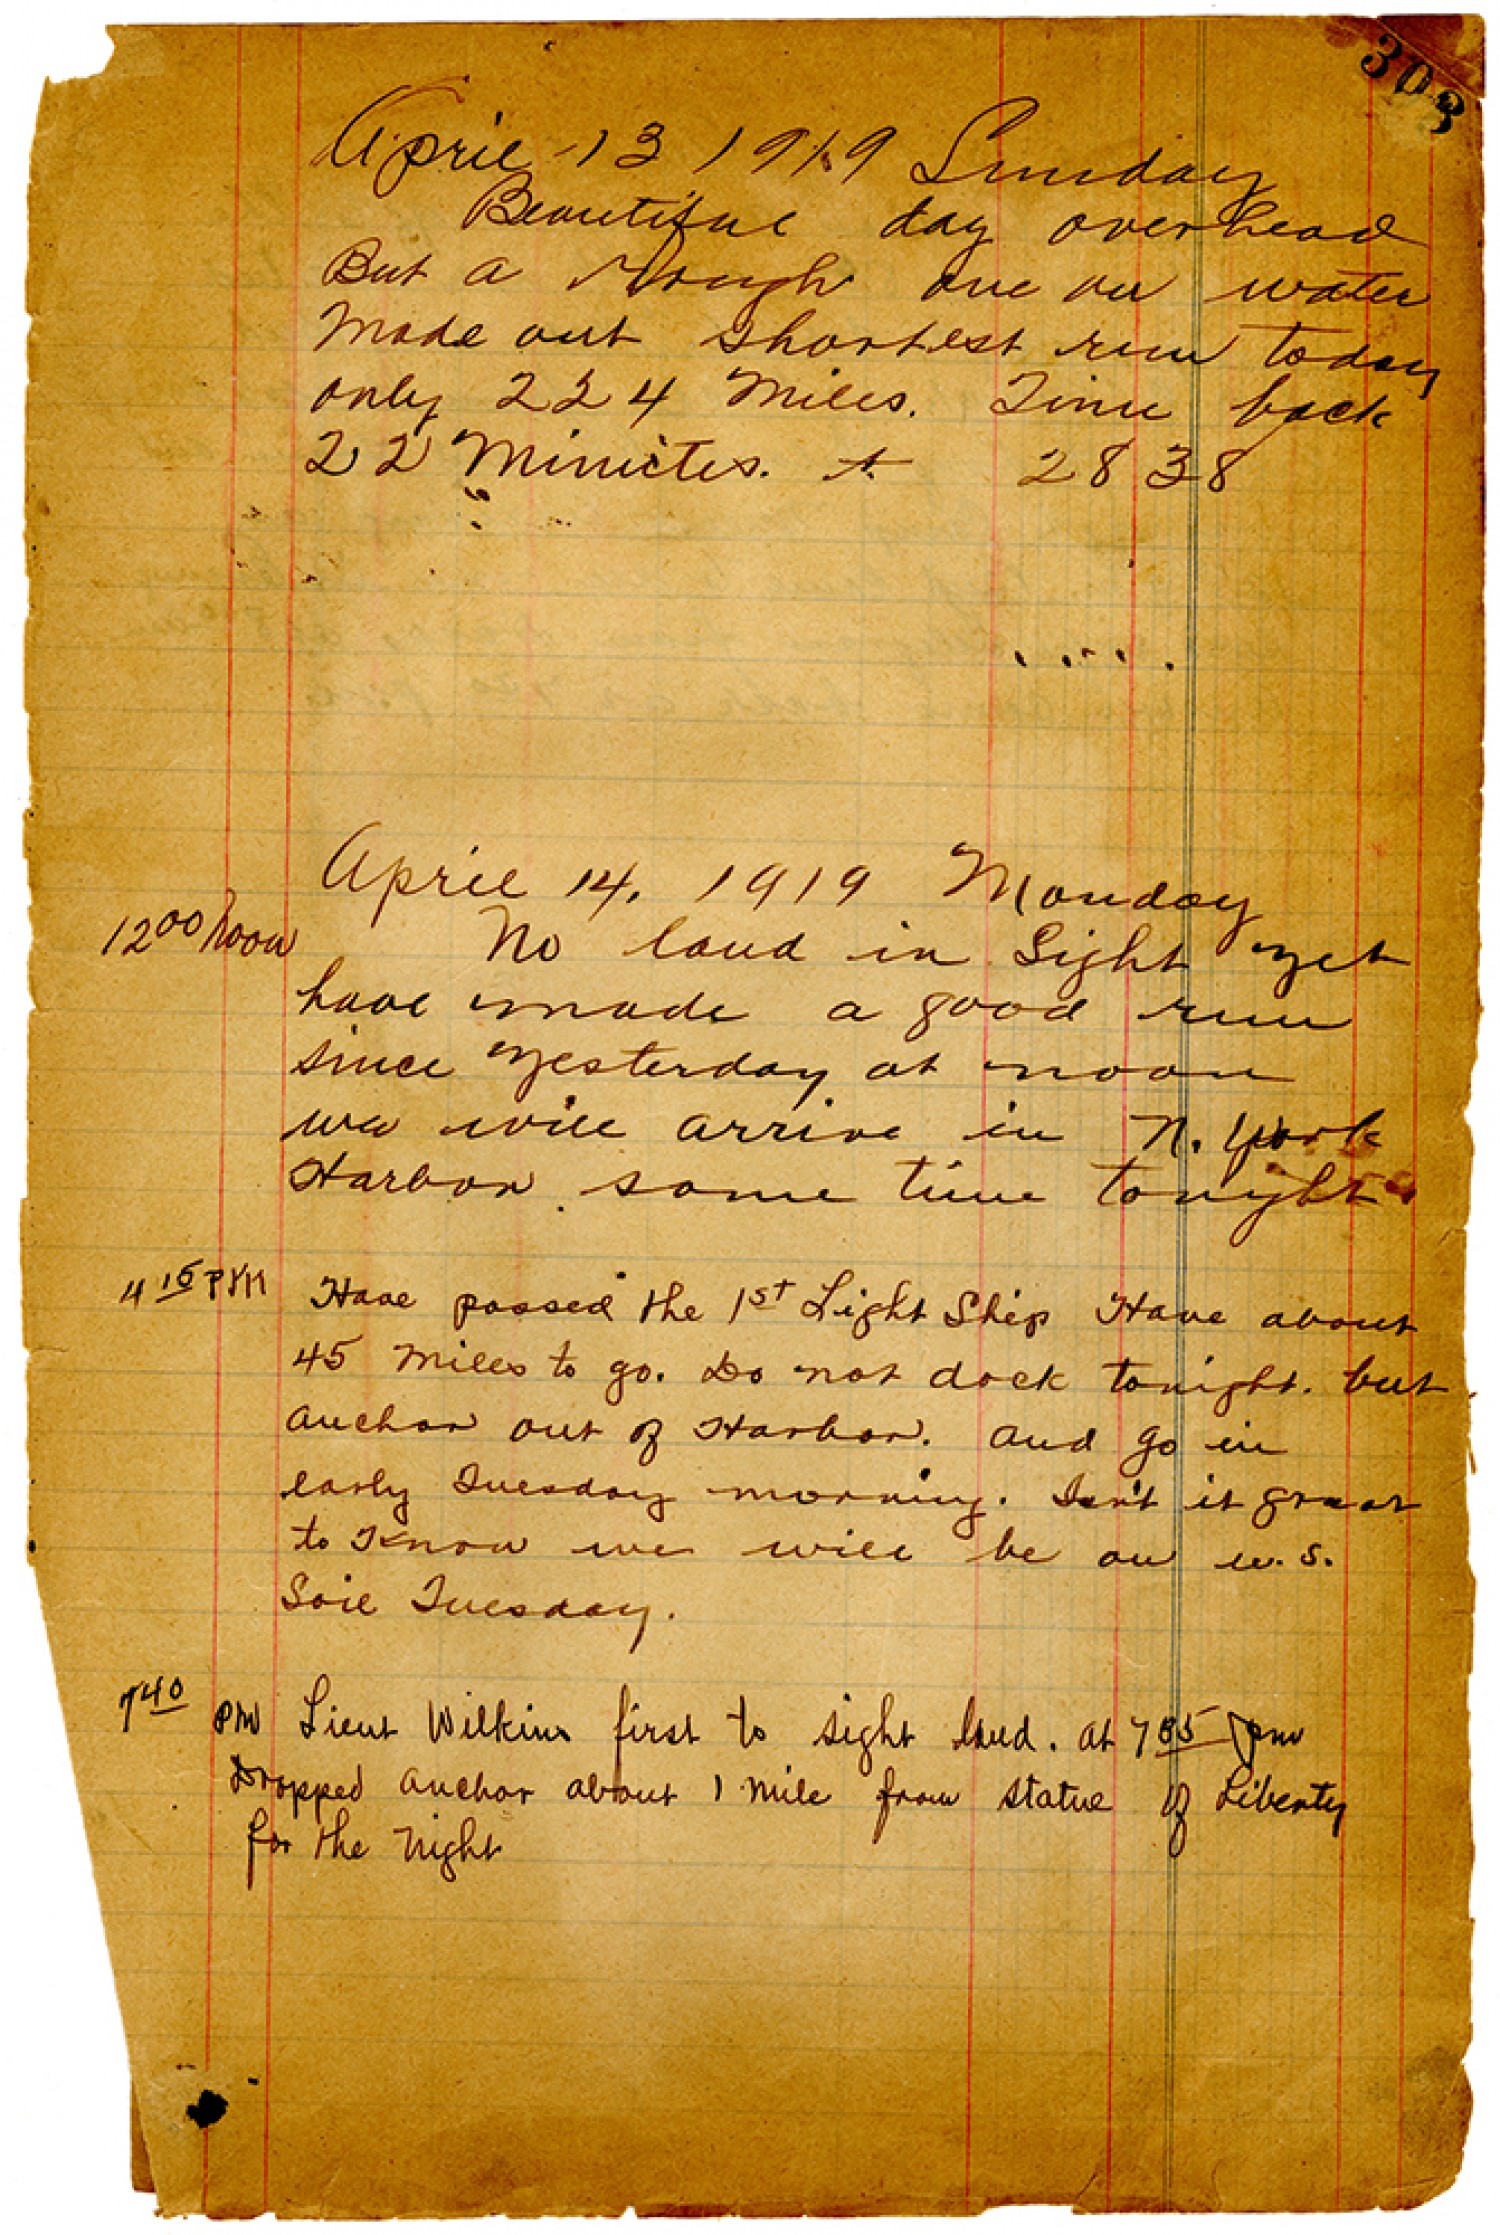 303
April 13 1919 Sunday
Beautiful day overhead
But a Rough one on water
Made out shortest run today
only 224 Miles. Time back
22 Minutes. 2838
April 14, 1919 Monday
12 00 Noon No land in Sight yet
have made a good run
since yesterday at noon
we will arrive in N. York
Harbor some time tonight
4 15 PM Have passed the 1st Light Ship Have about
45 Miles to go. Do not dock tonight. but
anchor out of Harbor. and go in
early Tuesday morning. Isn't it great
to Know we will be on U.S.
Soil Tuesday.
7 40 pm Lieut Wilkins first to sight land. at 7 55 pm
Dropped anchor about 1 Mile from Statue of Liberty
for the Night